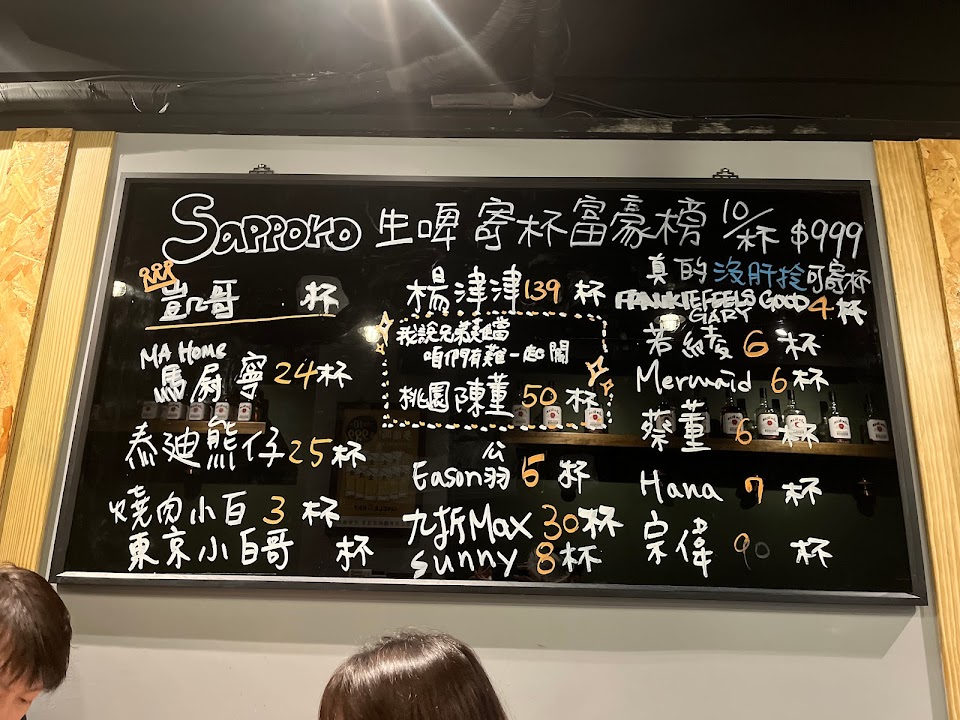 SAPPORO 生啤 寄杯富豪榜 10/杯 $999
凱哥 杯
MA Home
馬屍寧 24杯
泰迪熊仔 25杯
燒肉小白 3 杯
東京小白哥 杯
楊津津 139 杯
我說兄弟莫當
咱們有難一起闖
桃園陳董 50 杯
Eason 公羽 5 杯
九折Max 30杯
sunny 8杯
真的沒肝捻可寄杯
FRANKIE FEELS GOOD 4杯
GARY
若綾 6 杯
Mermaid 6杯
蔡董 6 杯
Hana 7 杯
宗偉 90 杯